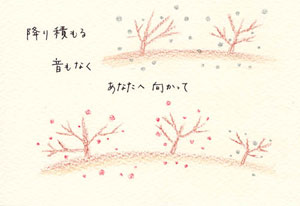 降り積もる
音もなく
あなたへ 向かって